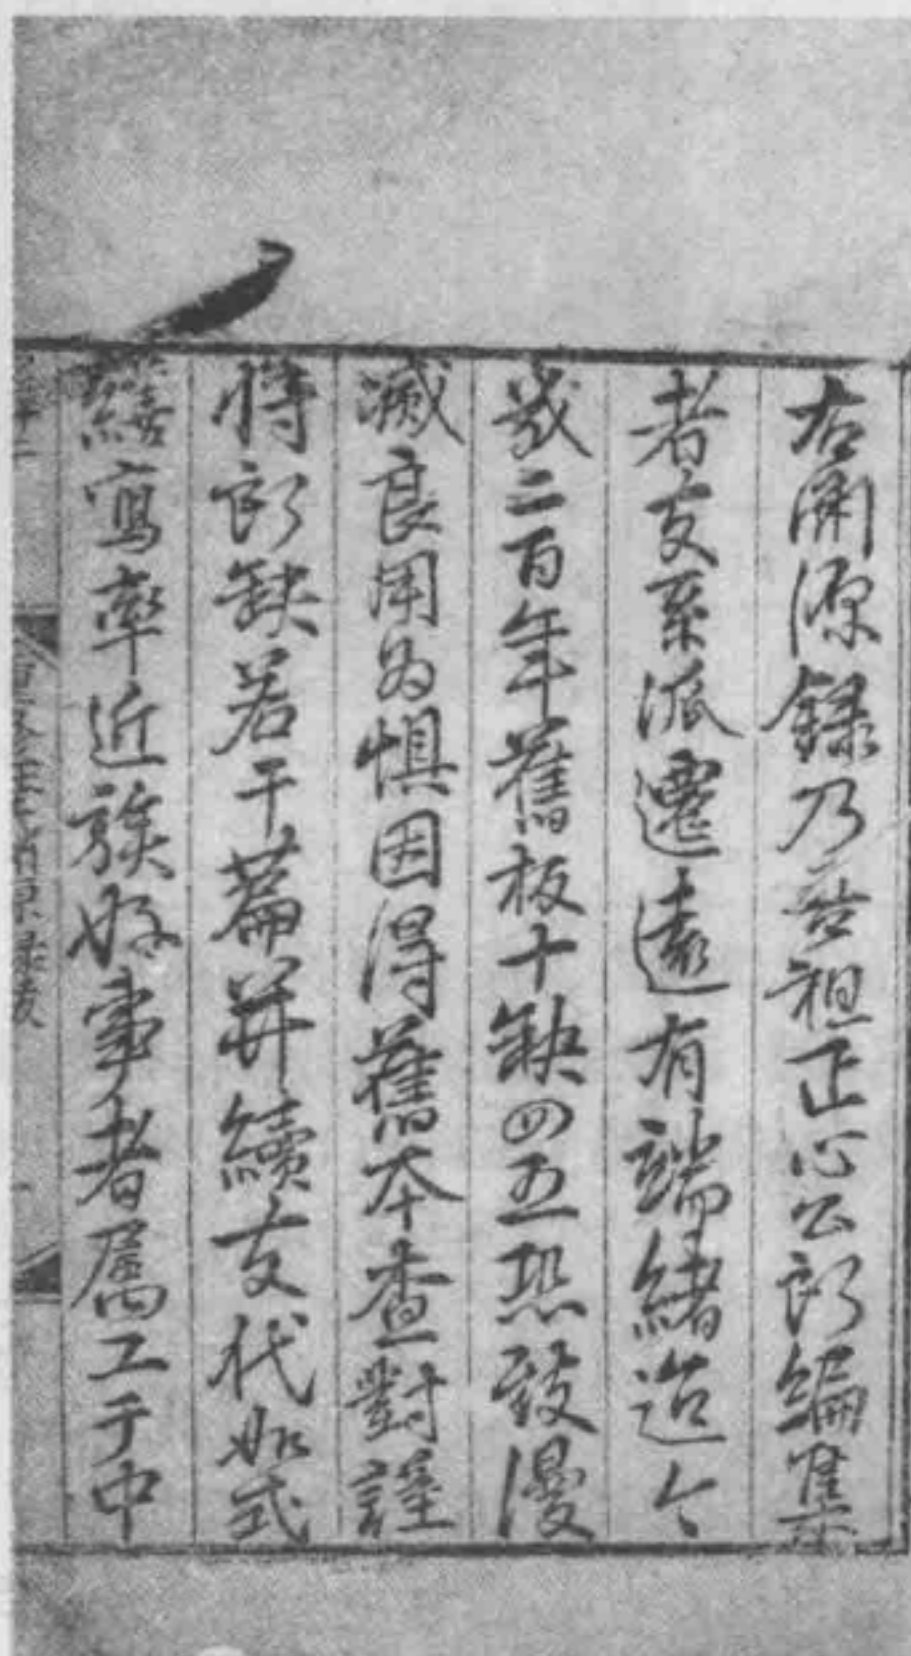 右開源錄乃吾祖正心公所編集
者支系派遷遠有端緒迨今
幾二百年舊板十缺四五恐致漫
滅良用為懼因得舊本查對謹
將所缺若干篇並續支代如式
繕寫率近族好事者屬工于中